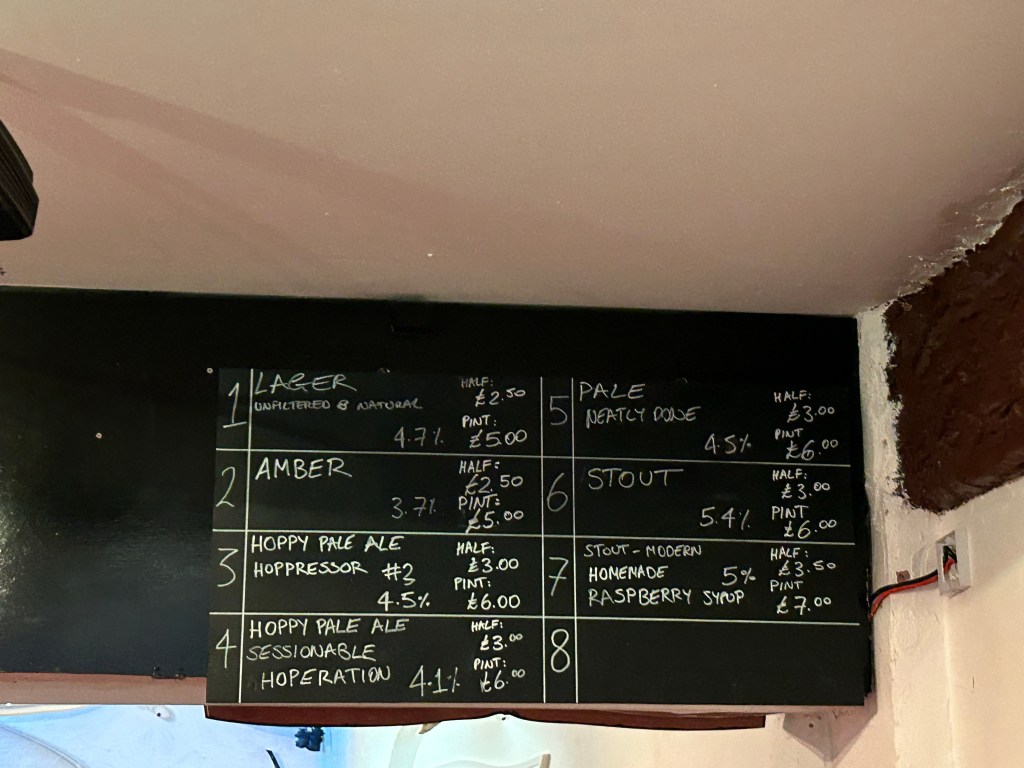 1 LAGER
UNFILTERED & NATURAL
4.7%
HALF:
£2.50
PINT:
£5.00
2 AMBER
3.7%
HALF:
£2.50
PINT:
£5.00
3 HOPPY PALE ALE
HOPPRESSOR #3
4.5%
HALF:
£3.00
PINT:
£6.00
4 HOPPY PALE ALE
SESSIONABLE
HOPERATION 4.1%
HALF:
£3.00
PINT:
£6.00
5 PALE
NEATLY DONE
4.5%
HALF:
£3.00
PINT
£6.00
6 STOUT
5.4%
HALF:
£3.00
PINT
£6.00
7 STOUT - MODERN
HOMEMADE 5%
RASPBERRY SYRUP
HALF:
£3.50
PINT
£7.00
8